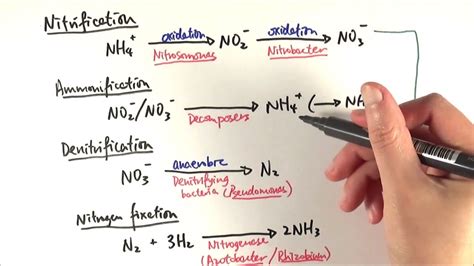 Nitrification
NH₄⁺ oxidation Nitrosomonas → NO₂⁻ oxidation Nitrobacter → NO₃⁻
Ammonification
NO₂⁻/NO₃⁻ Decomposers → NH₄⁺ (→
Denitrification
NO₃⁻ anaerobic → N₂
Denitrifying
bacteria (Pseudomonas)
Nitrogen fixation
N₂ + 3H₂ → 2NH₃
Nitrogenase
(Azotobacter/Rhizobium)